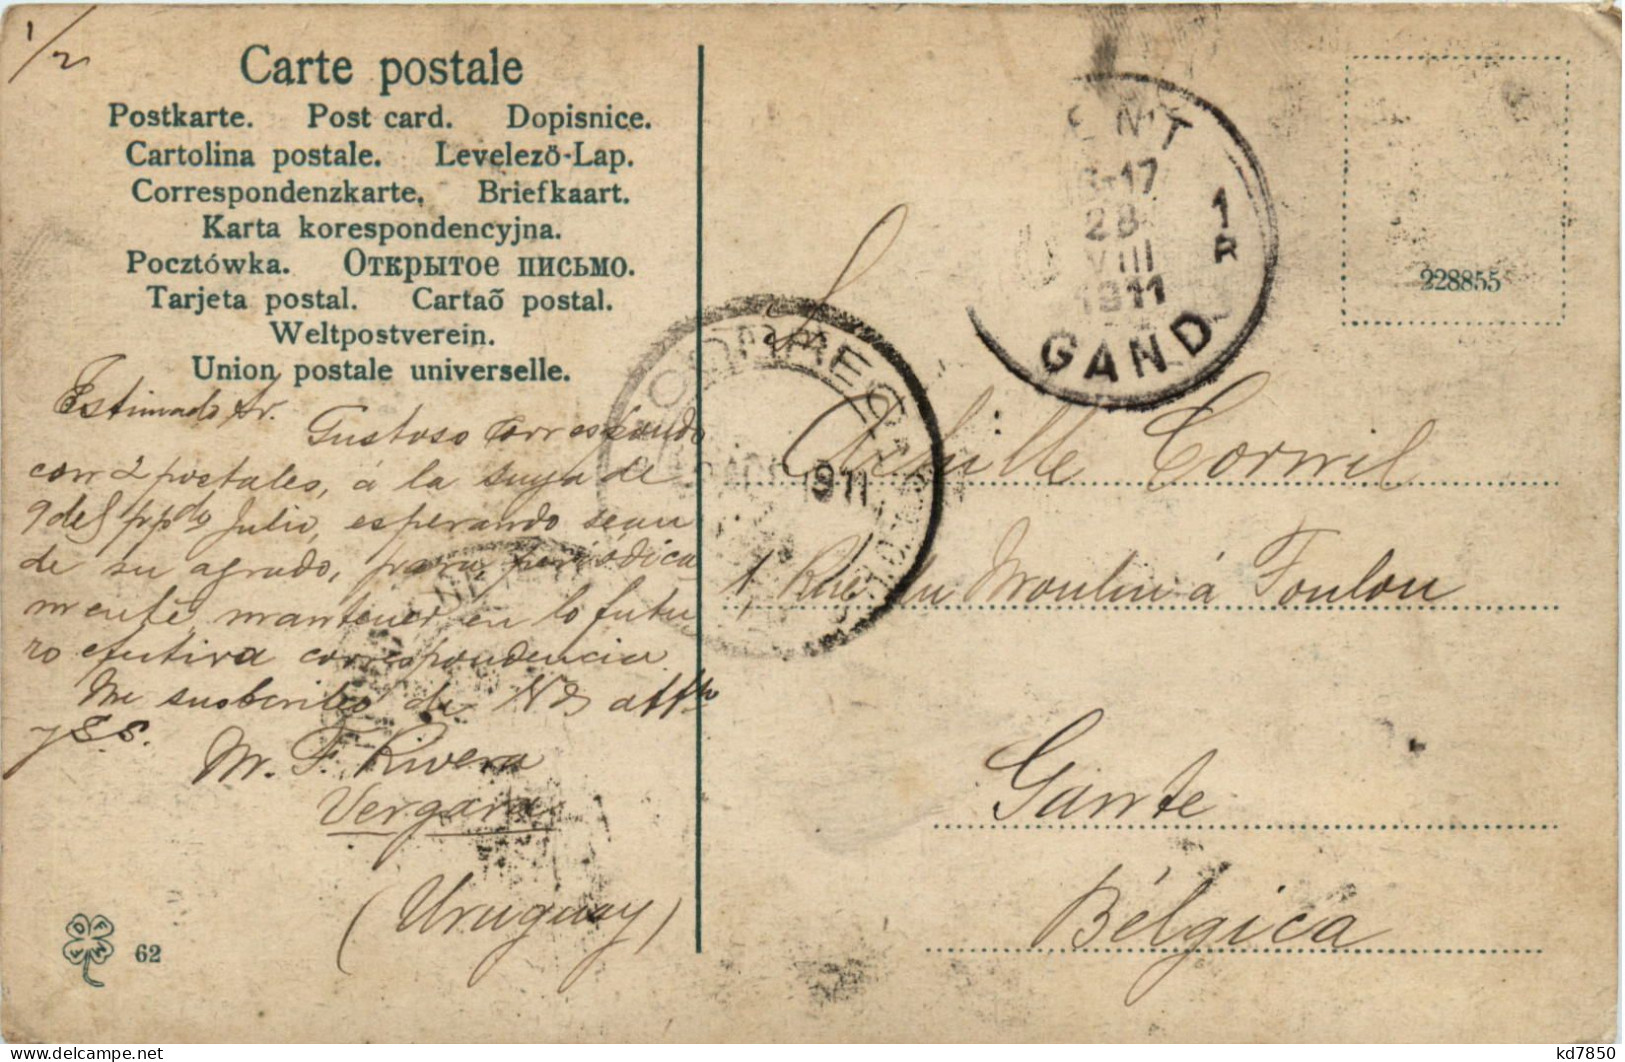 1/2
Carte postale
Postkarte. Post card. Dopisnice.
Cartolina postale. Levelező-Lap.
Correspondenzkarte. Briefkaart.
Karta korespondencyjna.
Pocztówka. Открытое письмо.
Tarjeta postal. Cartaõ postal.
Weltpostverein.
Union postale universelle.
Estimado Sr.
Gustoso correspondo
con 2 postales, á la suya de
9 del ppdo Julio, esperando sean
de su agrado, para periódica
mente mantener en lo futu
ro efectiva correspondencia.
Me suscribo de Vd
y S.S.
M. F. Rivera
Vergara
(Uruguay)
62
GAND
17
28
VIII
1911
1
R
228855
1911
S
Achille Corwil
1, Rue du Moulin á Foulon
Gante
Bélgica
kd7850